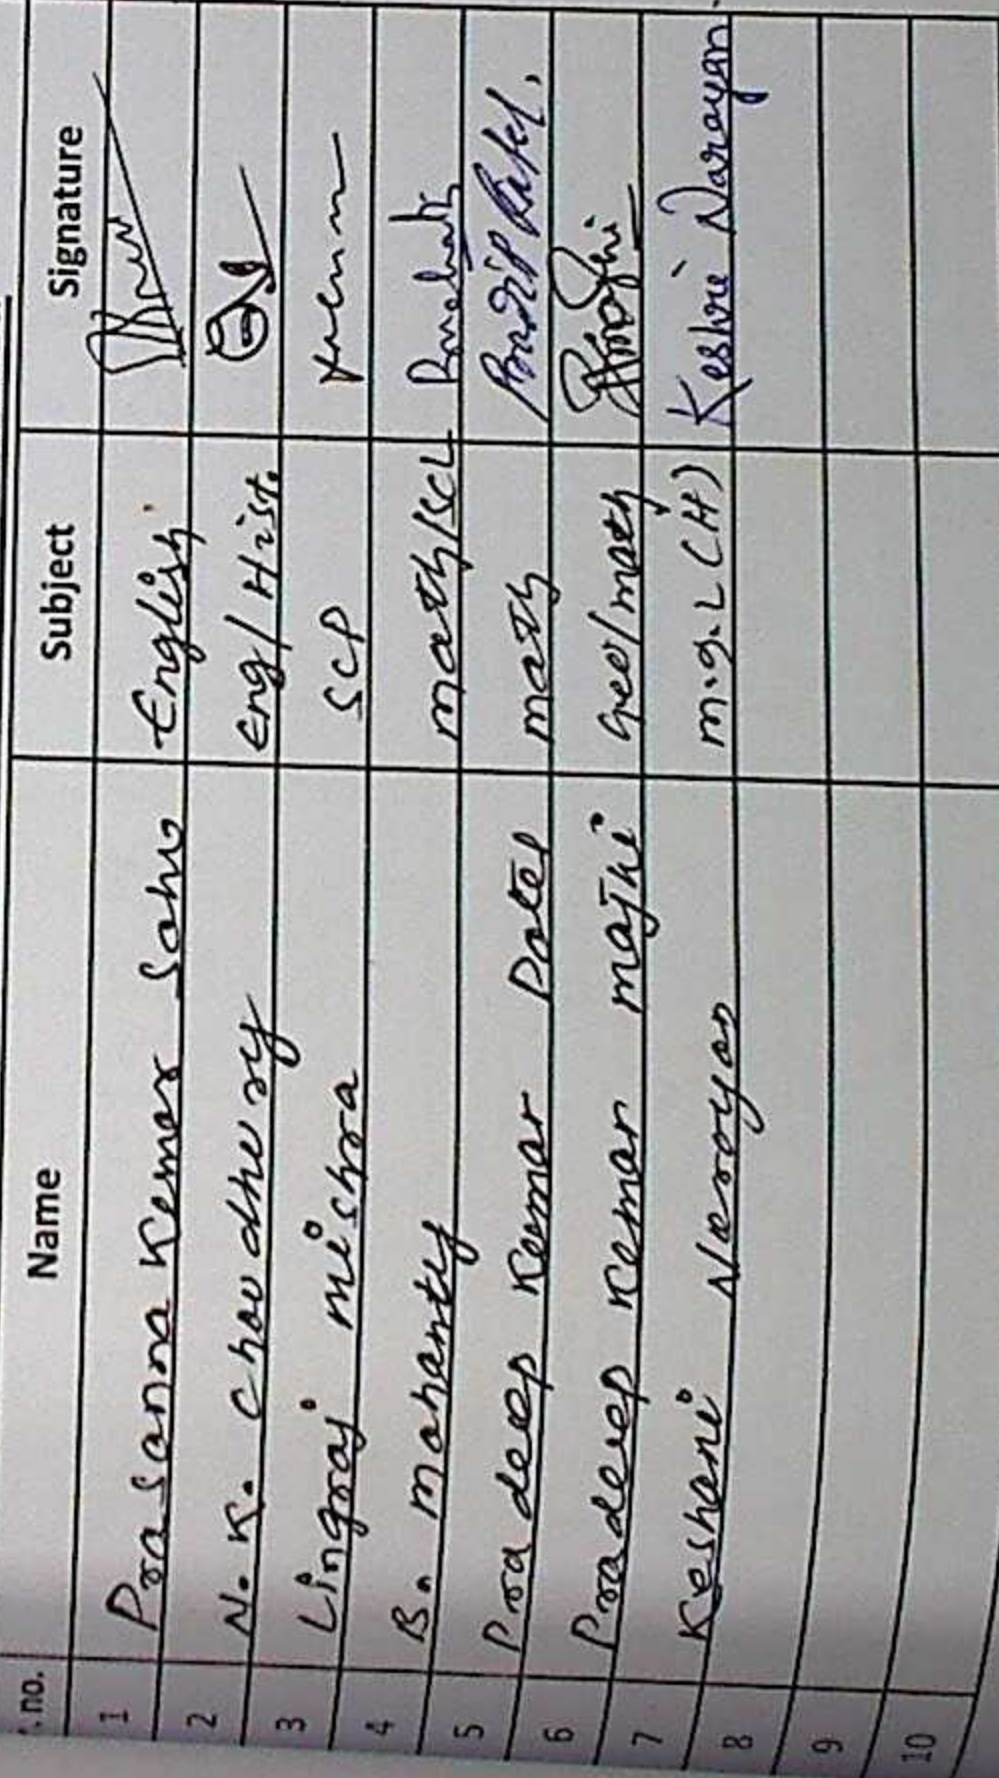 no. Name Subject Signature
1 Prasanna Kumar Sahu English
2 N. K. Choudhury Eng/Hist.
3 Lingraj Mishra SCP
4 B. Mohanty Math/SCL
5 Pradeep Kumar Patel Math Pradip Patel.
6 Pradeep Kumar Majhi Geo/Math
7 Keshari Narayan M.g.L (H) Keshri Narayan
8
9
10